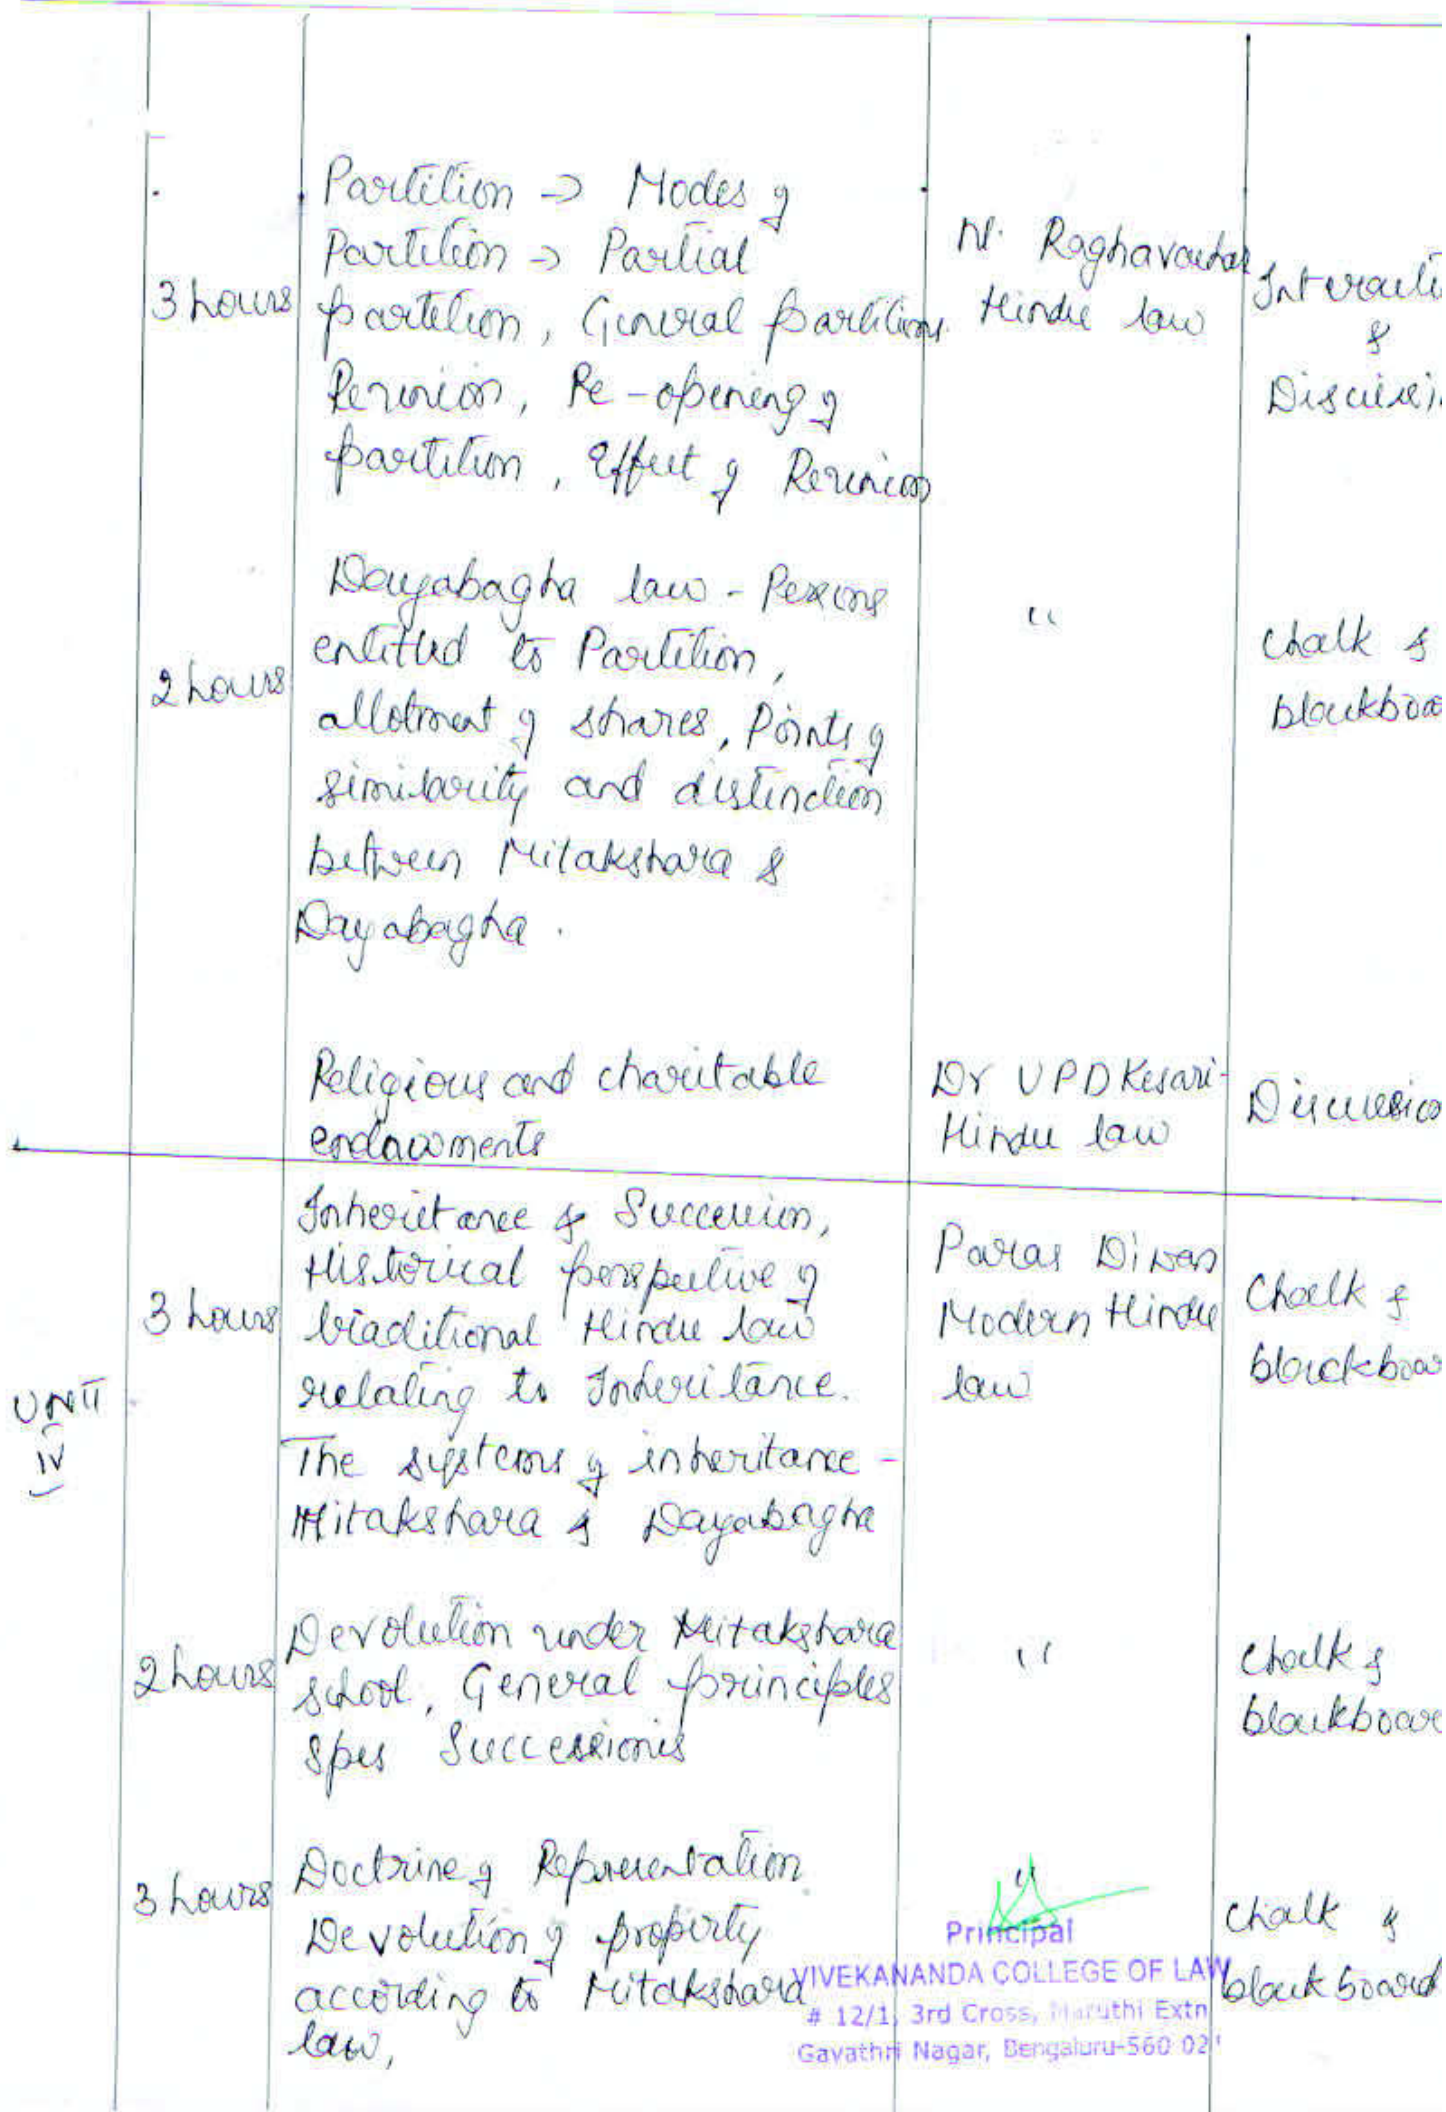 Partition -> Modes of
Partition -> Partial
3 hours
partition, General partitions.
Reunion, Re-opening of
partition, Effect of Reunion
N. Raghavachar
Hindu law
Interacti
&
Discussi
2 hours
Dayabagha law - Persons
entitled to Partition,
allotment of shares, Points of
similarity and distinction
between Mitakshara &
Dayabagha.
"
Chalk &
blackboa
Religious and charitable
endowments
Dr UPD Kesari-
Hindu law
Discussio
UNIT
IV
3 hours
Inheritance & Succession,
Historical perspective of
traditional Hindu law
relating to Inheritance.
The systems of inheritance -
Mitakshara & Dayabagha
Paras Diwan
Modern Hindu
law
Chalk &
blackboar
2 hours
Devolution under Mitakshara
school, General principles
Spes Successionis
"
Chalk &
blackboar
3 hours
Doctrine of Representation.
Devolution of property
according to Mitakshara
law,
"
Chalk &
blackboard
Principal
VIVEKANANDA COLLEGE OF LAW
# 12/1, 3rd Cross, Maruthi Extn
Gayathri Nagar, Bengaluru-560 02